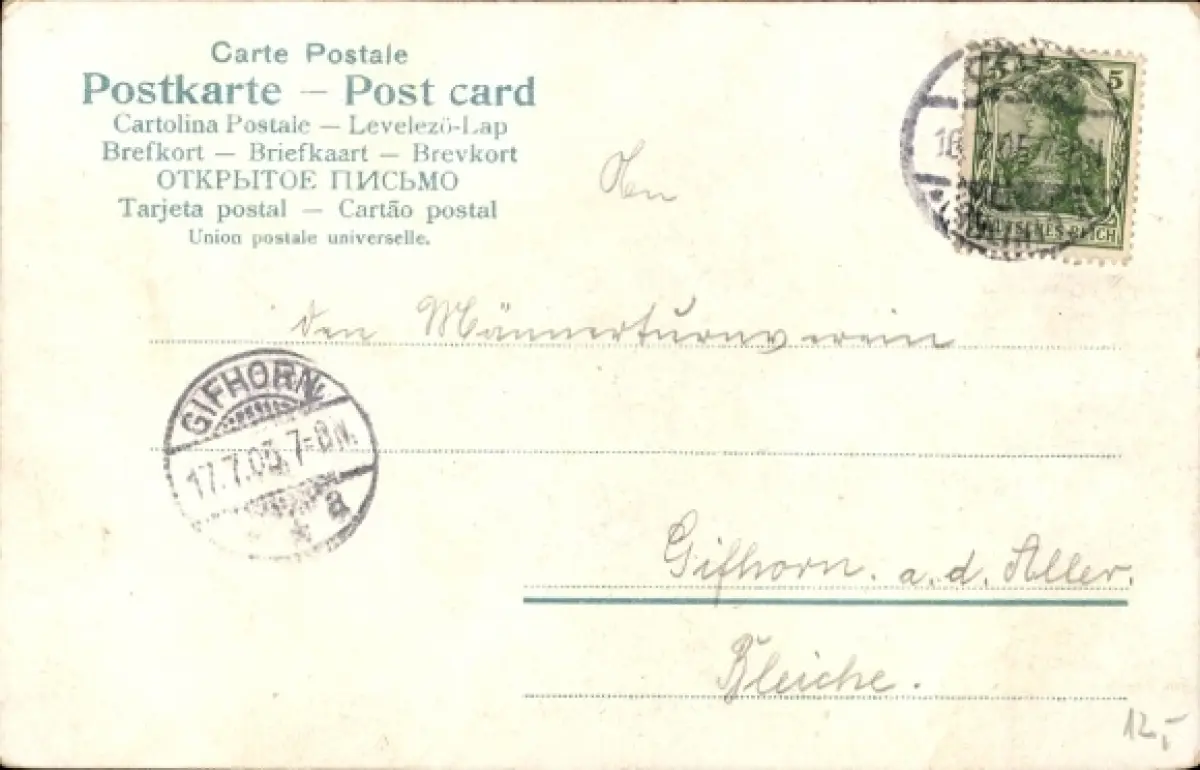 Carte Postale
Postkarte — Post card
Cartolina Postale — Levelezö-Lap
Brefkort — Briefkaart — Brevkort
ОТКРЫТОЕ ПИСЬМО
Tarjeta postal — Cartão postal
Union postale universelle.
5
16.7.05
DEUTSCHES REICH
An
den Männerturnverein
GIFHORN
17.7.05. 7-8 N.
* a
Gifhorn. a. d. Aller.
Bleiche.
12,-